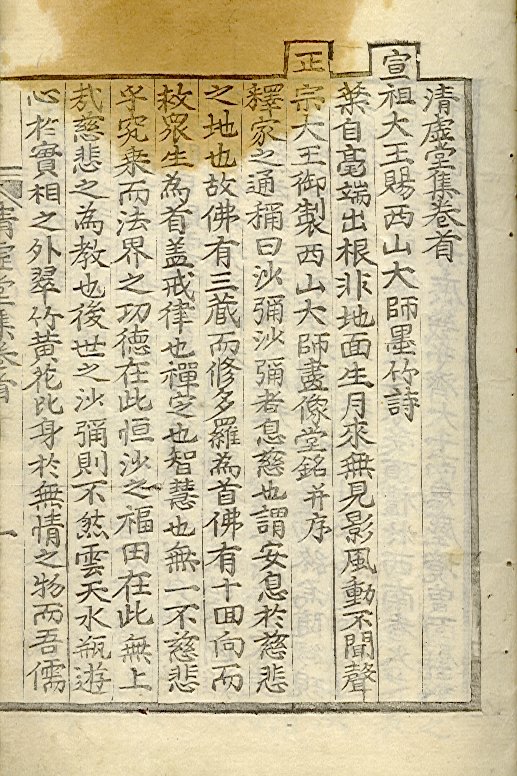 清虛堂集卷首
宣祖大王賜西山大師墨竹詩
葉自毫端出根非地面生月來無見影風動不聞聲
正宗大王御製西山大師畫像堂銘并序
釋家之通稱曰沙彌沙彌者息慈也謂安息於慈悲
之地也故佛有三藏而修多羅為首佛有十回向而
救眾生為首盖戒律也禪定也智慧也無一不慈悲
乎究乘而法界之功德在此恒沙之福田在此無上
哉慈悲之為教也後世之沙彌則不然雲天水瓶遊
心於實相之外翠竹黃花比身於無情之物而吾儒
清虛堂集卷首 一